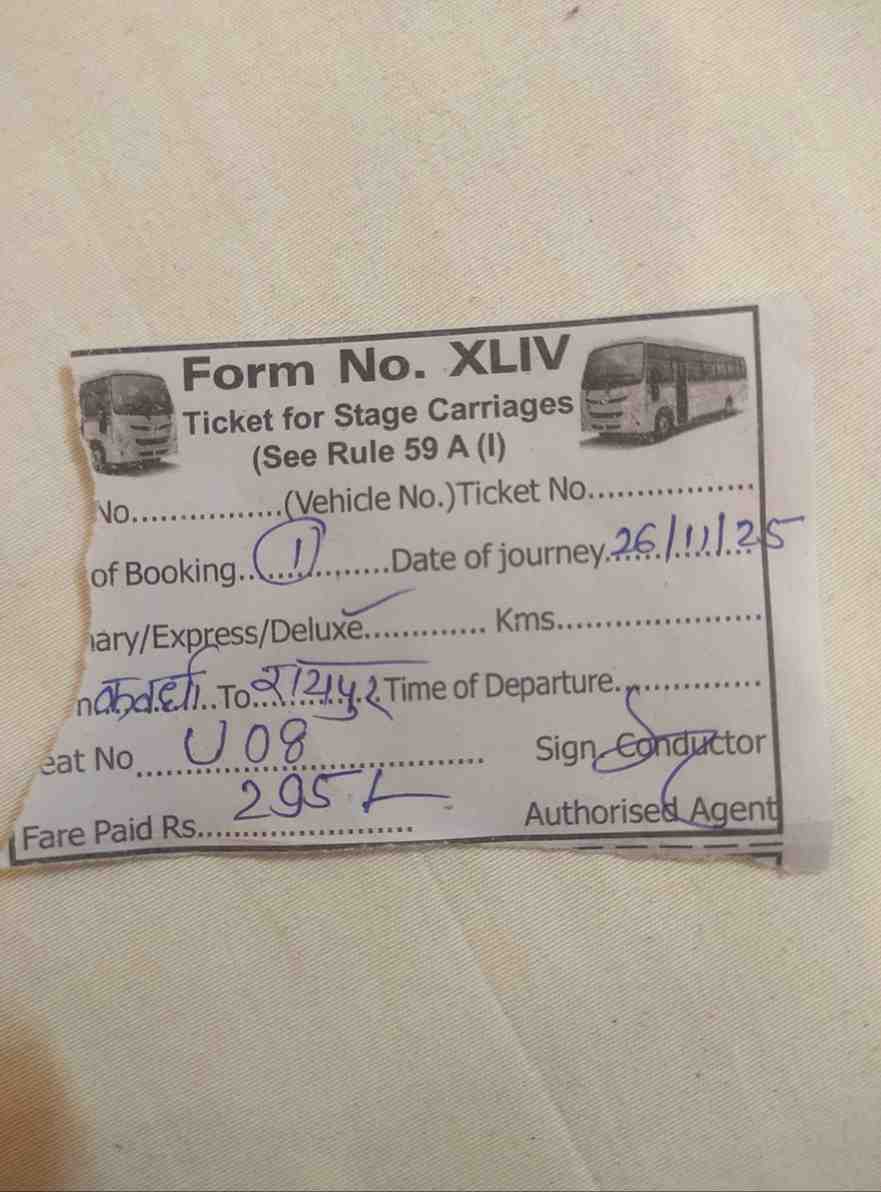 Form No. XLIV
Ticket for Stage Carriages
(See Rule 59 A (I)
No................(Vehicle No.)Ticket No..................
of Booking...1...........Date of journey.26/11/25
nary/Express/Deluxe............. Kms......................
To रायपुर Time of Departure................
eat No U 08 Sign. Conductor
Fare Paid Rs. 295/- Authorised Agent